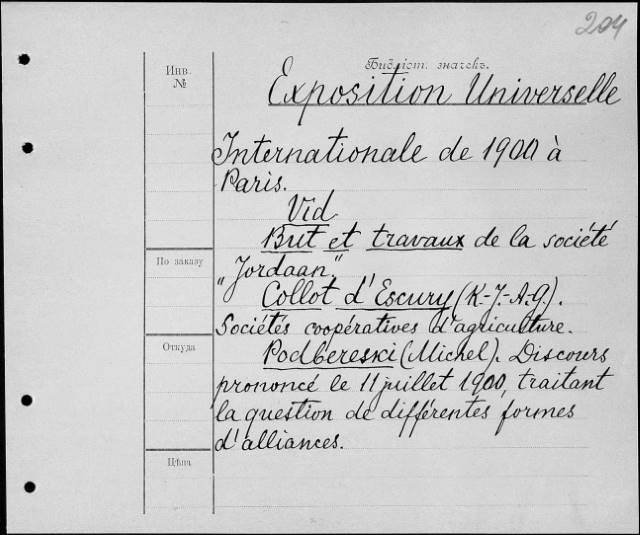 204
Библіот. значекъ.
Инв.
№
Exposition Universelle
Internationale de 1900 à
Paris.
Vid.
But et travaux de la société
"Jordaan."
По заказу
Collot d'Escury (K.-J.-A.-G.).
Sociétés coopératives d'agriculture.
Откуда
Podbereski (Michel). Discours
prononcé le 11 juillet 1900, traitant
la question de différentes formes
d'alliances.
Цѣна